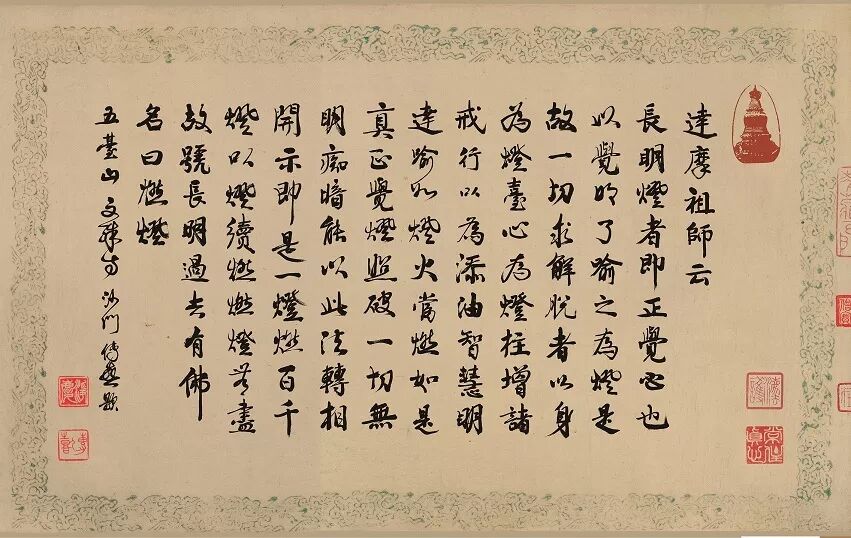 達摩祖師云
長明燈者即正覺心也
以覺明了喻之為燈是
故一切求解脫者以身
為燈臺心為燈柱增諸
戒行以為添油智慧明
達喻如燈火當燃如是
真正覺燈照破一切無
明痴暗能以此法轉相
開示即是一燈燃百千
燈以燈續燃燃燈無盡
故號長明過去有佛
名曰燃燈
五臺山文殊寺沙門傳題